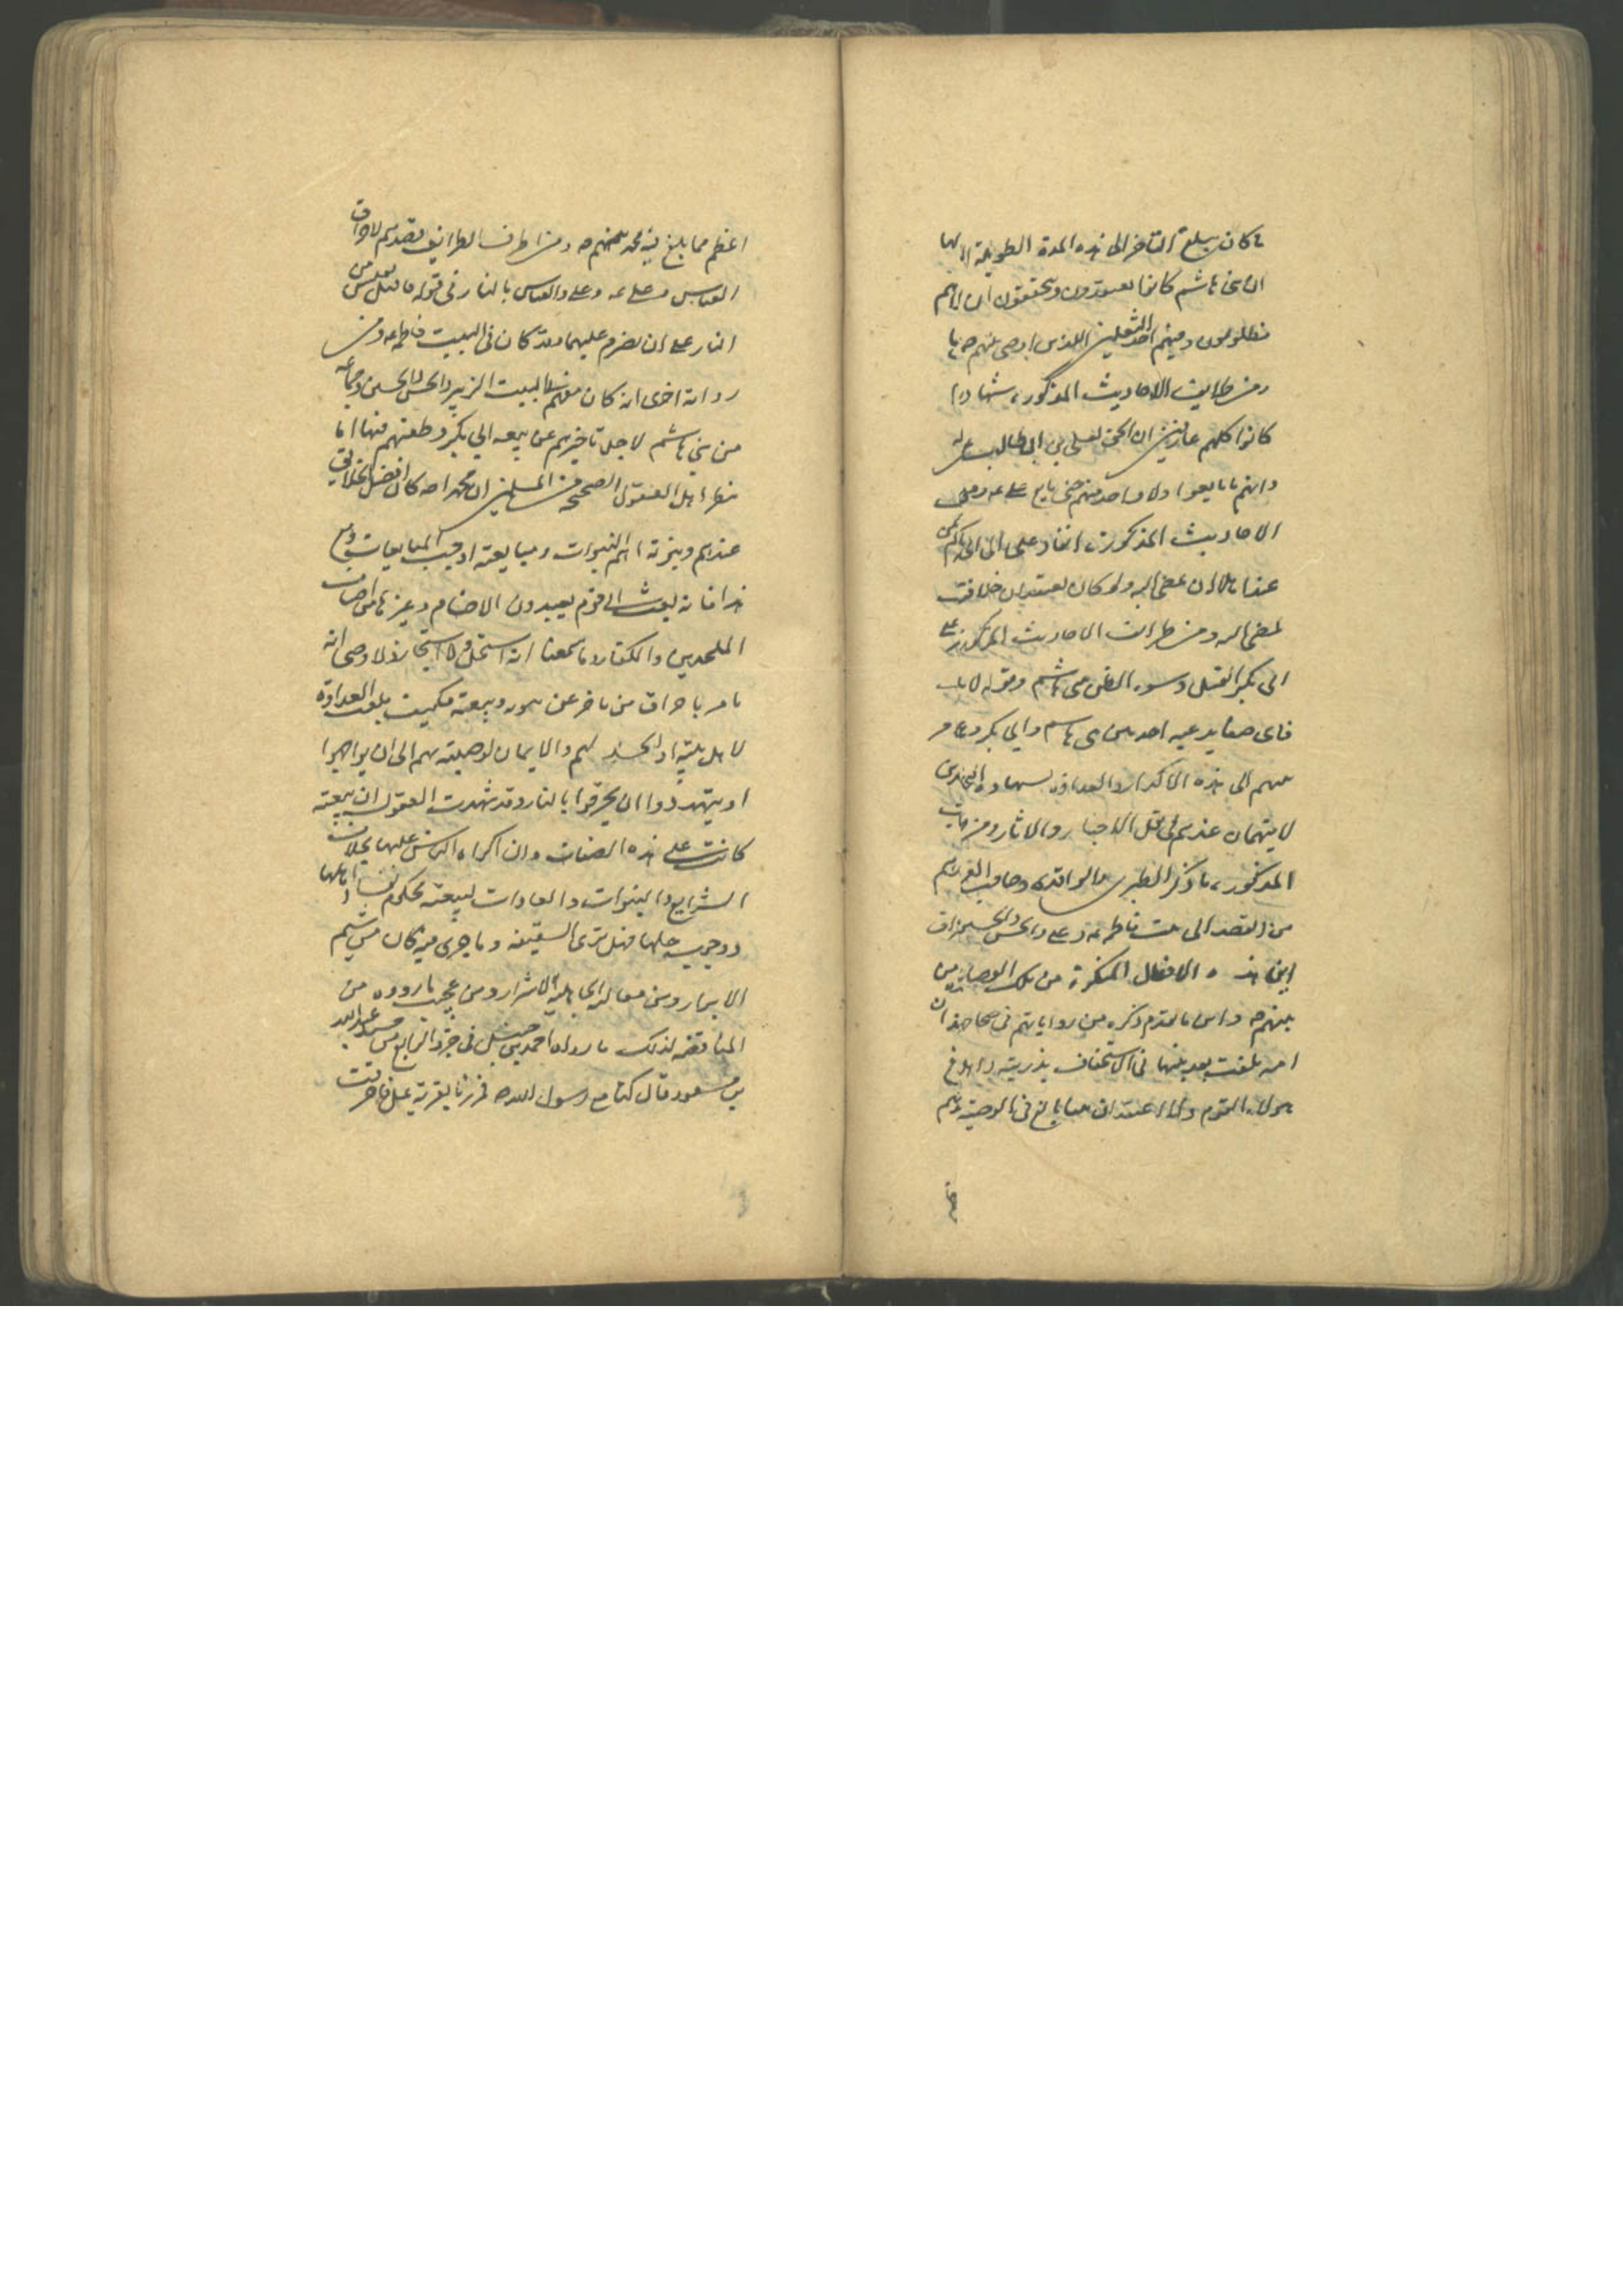 ما كان يبلغ التاخر الى هذه المدة الطويلة الا لما
ان بني هاشم كانوا يعتقدون ويتحققون ان اباهم
مظلومون ومنهم احد الثقلين اللذين اوصى نبيهم ص بها
ومن طرايف الاحاديث المذكورة شهاداتها
كانوا كلهم عارفين ان الحق لعلي بن ابي طالب
وانهم ما بايعوا ولا واحد منهم حتى بايع علي ع ومن
الاحاديث المذكورة انفاذ علي الى ابي بكر
عندنا بلا ان يمضي اليه ولو كان يعتقد ان خلافته
لمضى اليه ومن طرائف الاحاديث المذكورة
ابي بكر القتل وسوء الظن ببني هاشم وقوله لا
فاي صفا يدعيه احد بين بني هاشم وابي بكر وعمر
منهم الى هذه الاكدار والعداوة بشهادة الشيخين
لا يتهمان عندهم في نقل الاخبار والاثار ومن
المذكور ما ذكر الطبري والواقدي وصاحب الغرر
من القصد الى بيت فاطمة وعلي والحسن والحسين
اين هذه الافعال المنكرة من تلك الوصايا من
نبيهم ص واين ما تقدم ذكره من روايتهم في صحاحهم ان
امة بلغت بعد نبيها في الاستخفاف بذريته وابلاغ
هؤلاء القوم وما اعتقد ان نبيا بالغ في الوصية
اعظم مما بالغ فيه محمد نبيهم ص ومن اطرف الطرايف قصدهم لاحراق
العباس وعلي ع وعلي والعباس بالنار في قوله فاقبل بقبس من
النار على ان يضرم عليهما وقد كان في البيت فاطمة ومن
رواية اخرى انه كان معهم في البيت الزبير والحسن والحسين وجماعة
من بني هاشم لاجل تاخرهم عن بيعة ابي بكر وطعنهم فيها اما
ينظر اهل العقول الصحيحة من المسلمين ان محمدا ص كان افضل الخلائق
عندهم ونبوته اهم النبوات ومبايعته اوجب المبايعات ومع
هذا فانه بعث الى قوم يعبدون الاصنام وغيرها من اصناف
الملحدين والكفار وما سمعنا انه استحل ولا استجاز ولا رضي انه
يامر باحراق من تاخر عن نبوته وبيعته فكيف بلغت العداوة
لاهل بيته او الحسد لهم والاهمال لوصيته بهم الى ان يواجهوا
او يتهددوا ان يحرقوا بالنار وقد شهدت العقول ان بيعته
كانت على هذه الصفات وان اكراه الناس عليها بخلاف
الشرايع والنبوات والعادات لبيعة محكوم بفسادها
ووجوب حلها فهل ترى السقيفة وما جرى فيها كان من شيم
الابرار ومن مغالبة الجاهلية الاشرار ومن عجيب ما رووه من
المناقضة لذلك ما رواه احمد بن حنبل في الجزء الرابع من مسند عبد الله
بن مسعود قال كنا مع رسول الله ص فمررنا بقرية نمل فاحرقت